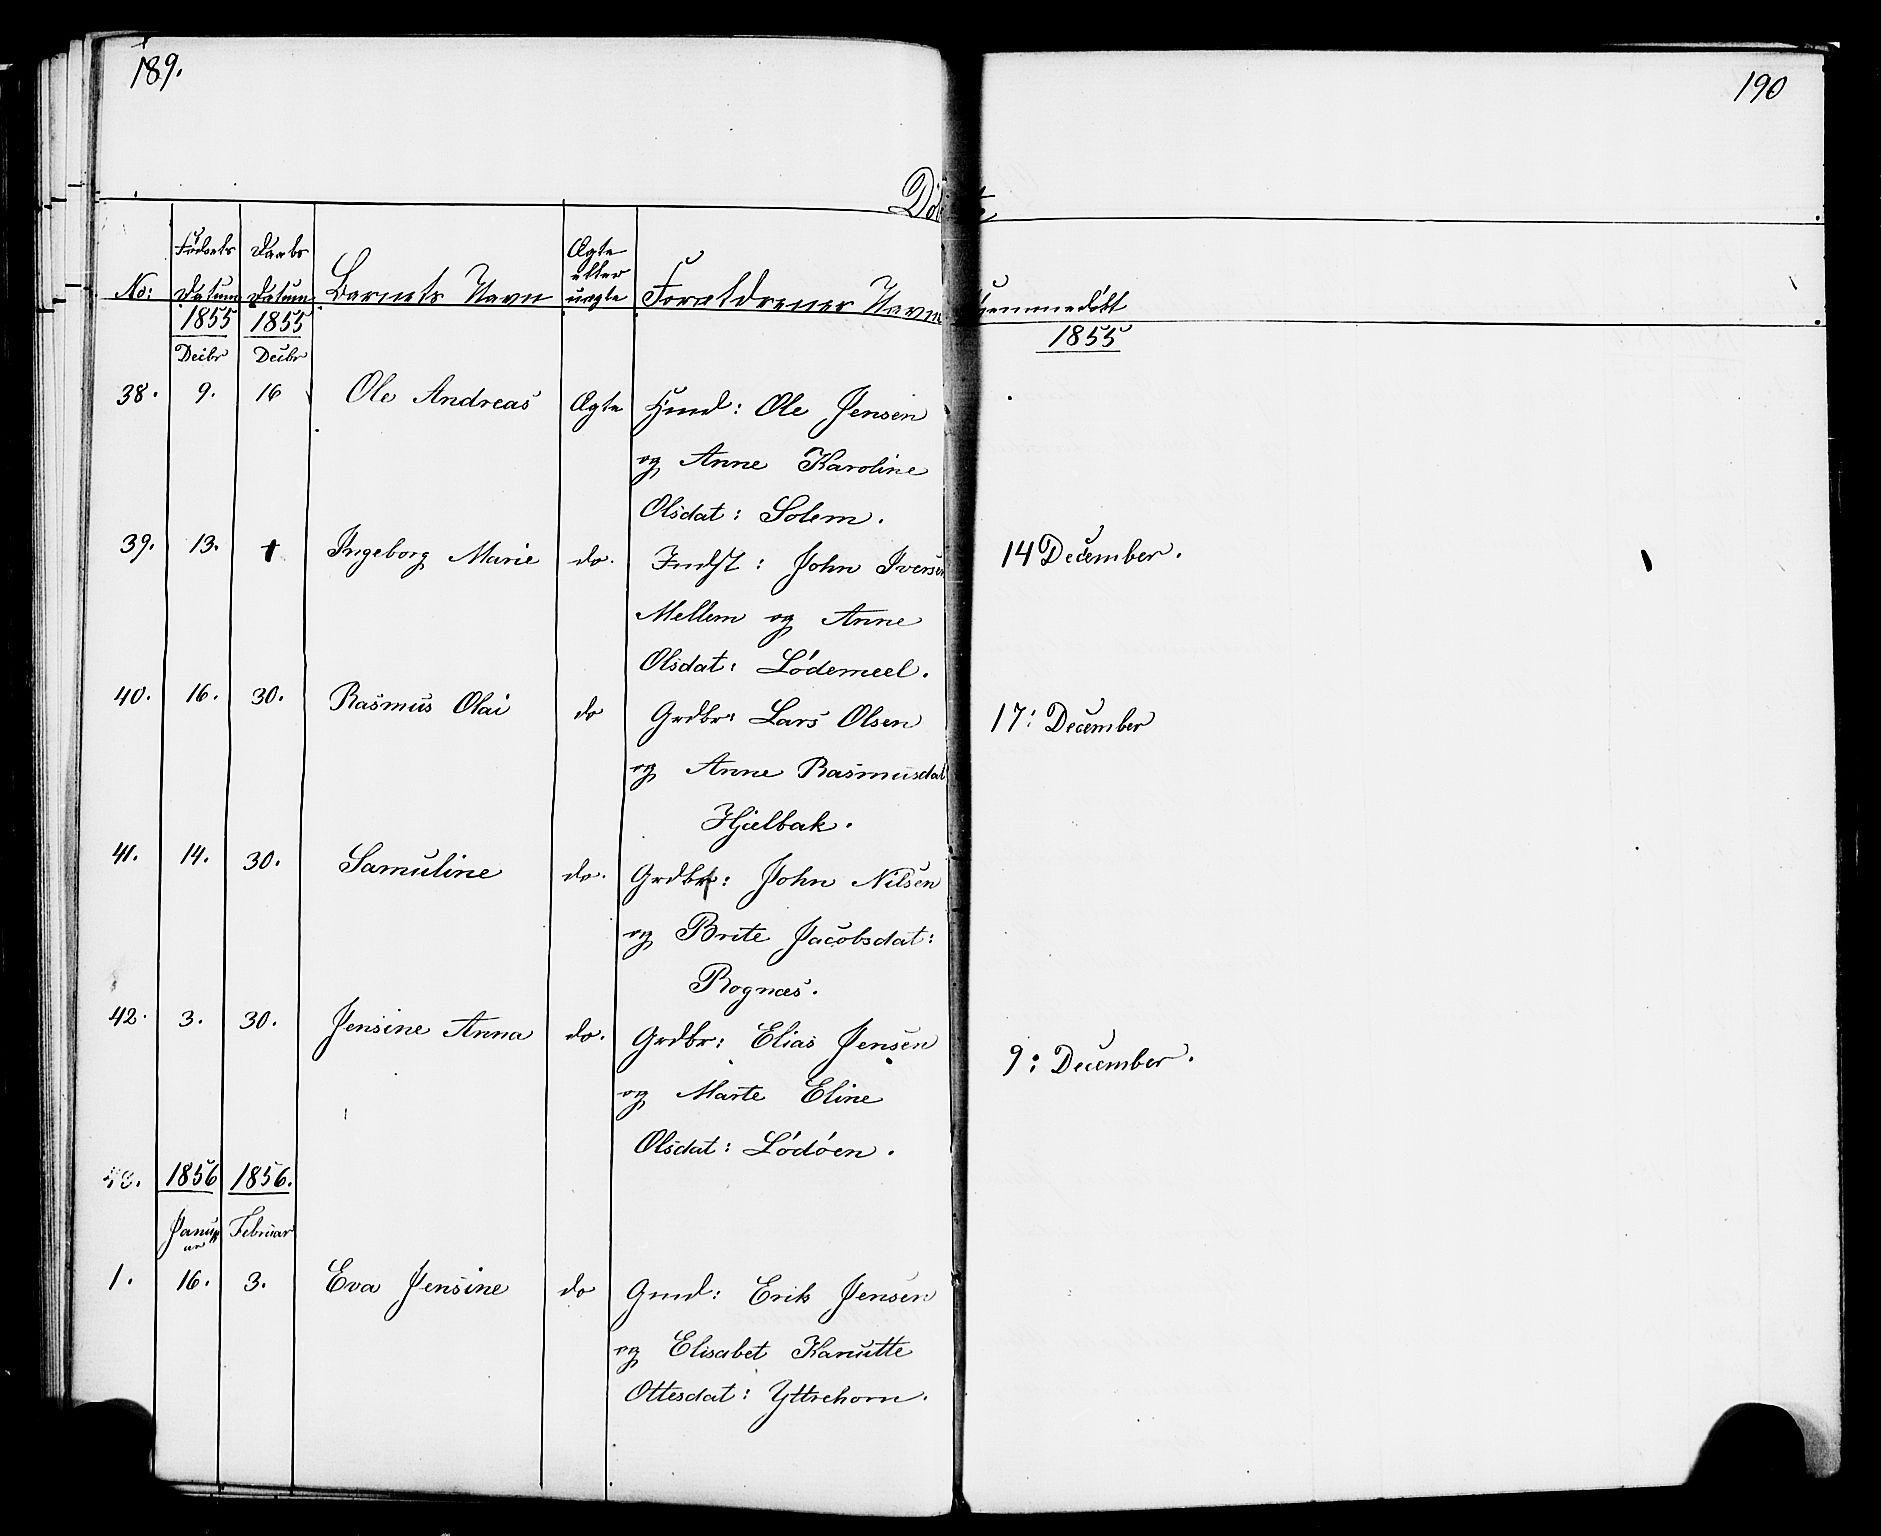 189.
190
Døbte
No:
Fødsels
Datum
Daabs
Datum
Barnets Navn
Ægte
eller
uægte
Forældrenes Navn
Hjemmedøbt
1855
1855
1855
Decbr
Decbr
38. 9. 16 Ole Andreas Ægte Huusmd: Ole Jensen
og Anne Karoline
Olsdat: Solem.
39. 13. + Ingeborg Marie do. Indst: John Iversen 14 December.
Mellem og Anne
Olsdat: Lødemeel.
40. 16. 30. Rasmus Olai do Grdbr: Lars Olsen 17: December
og Anne Rasmusdat
Hjelbak.
41. 14. 30. Samuline do. Grdbr: John Nilsen
og Brite Jacobsdat:
Rognæs.
42. 3. 30. Jensine Anna do. Grdbr: Elias Jensen 9: December.
og Marte Eline
Olsdat: Lødøen.
1856 1856.
Janu
ar
Februar
1. 16. 3. Eva Jensine do Gmd: Erik Jensen
og Elisabet Kanutte
Ottesdat: Yttrehorn.